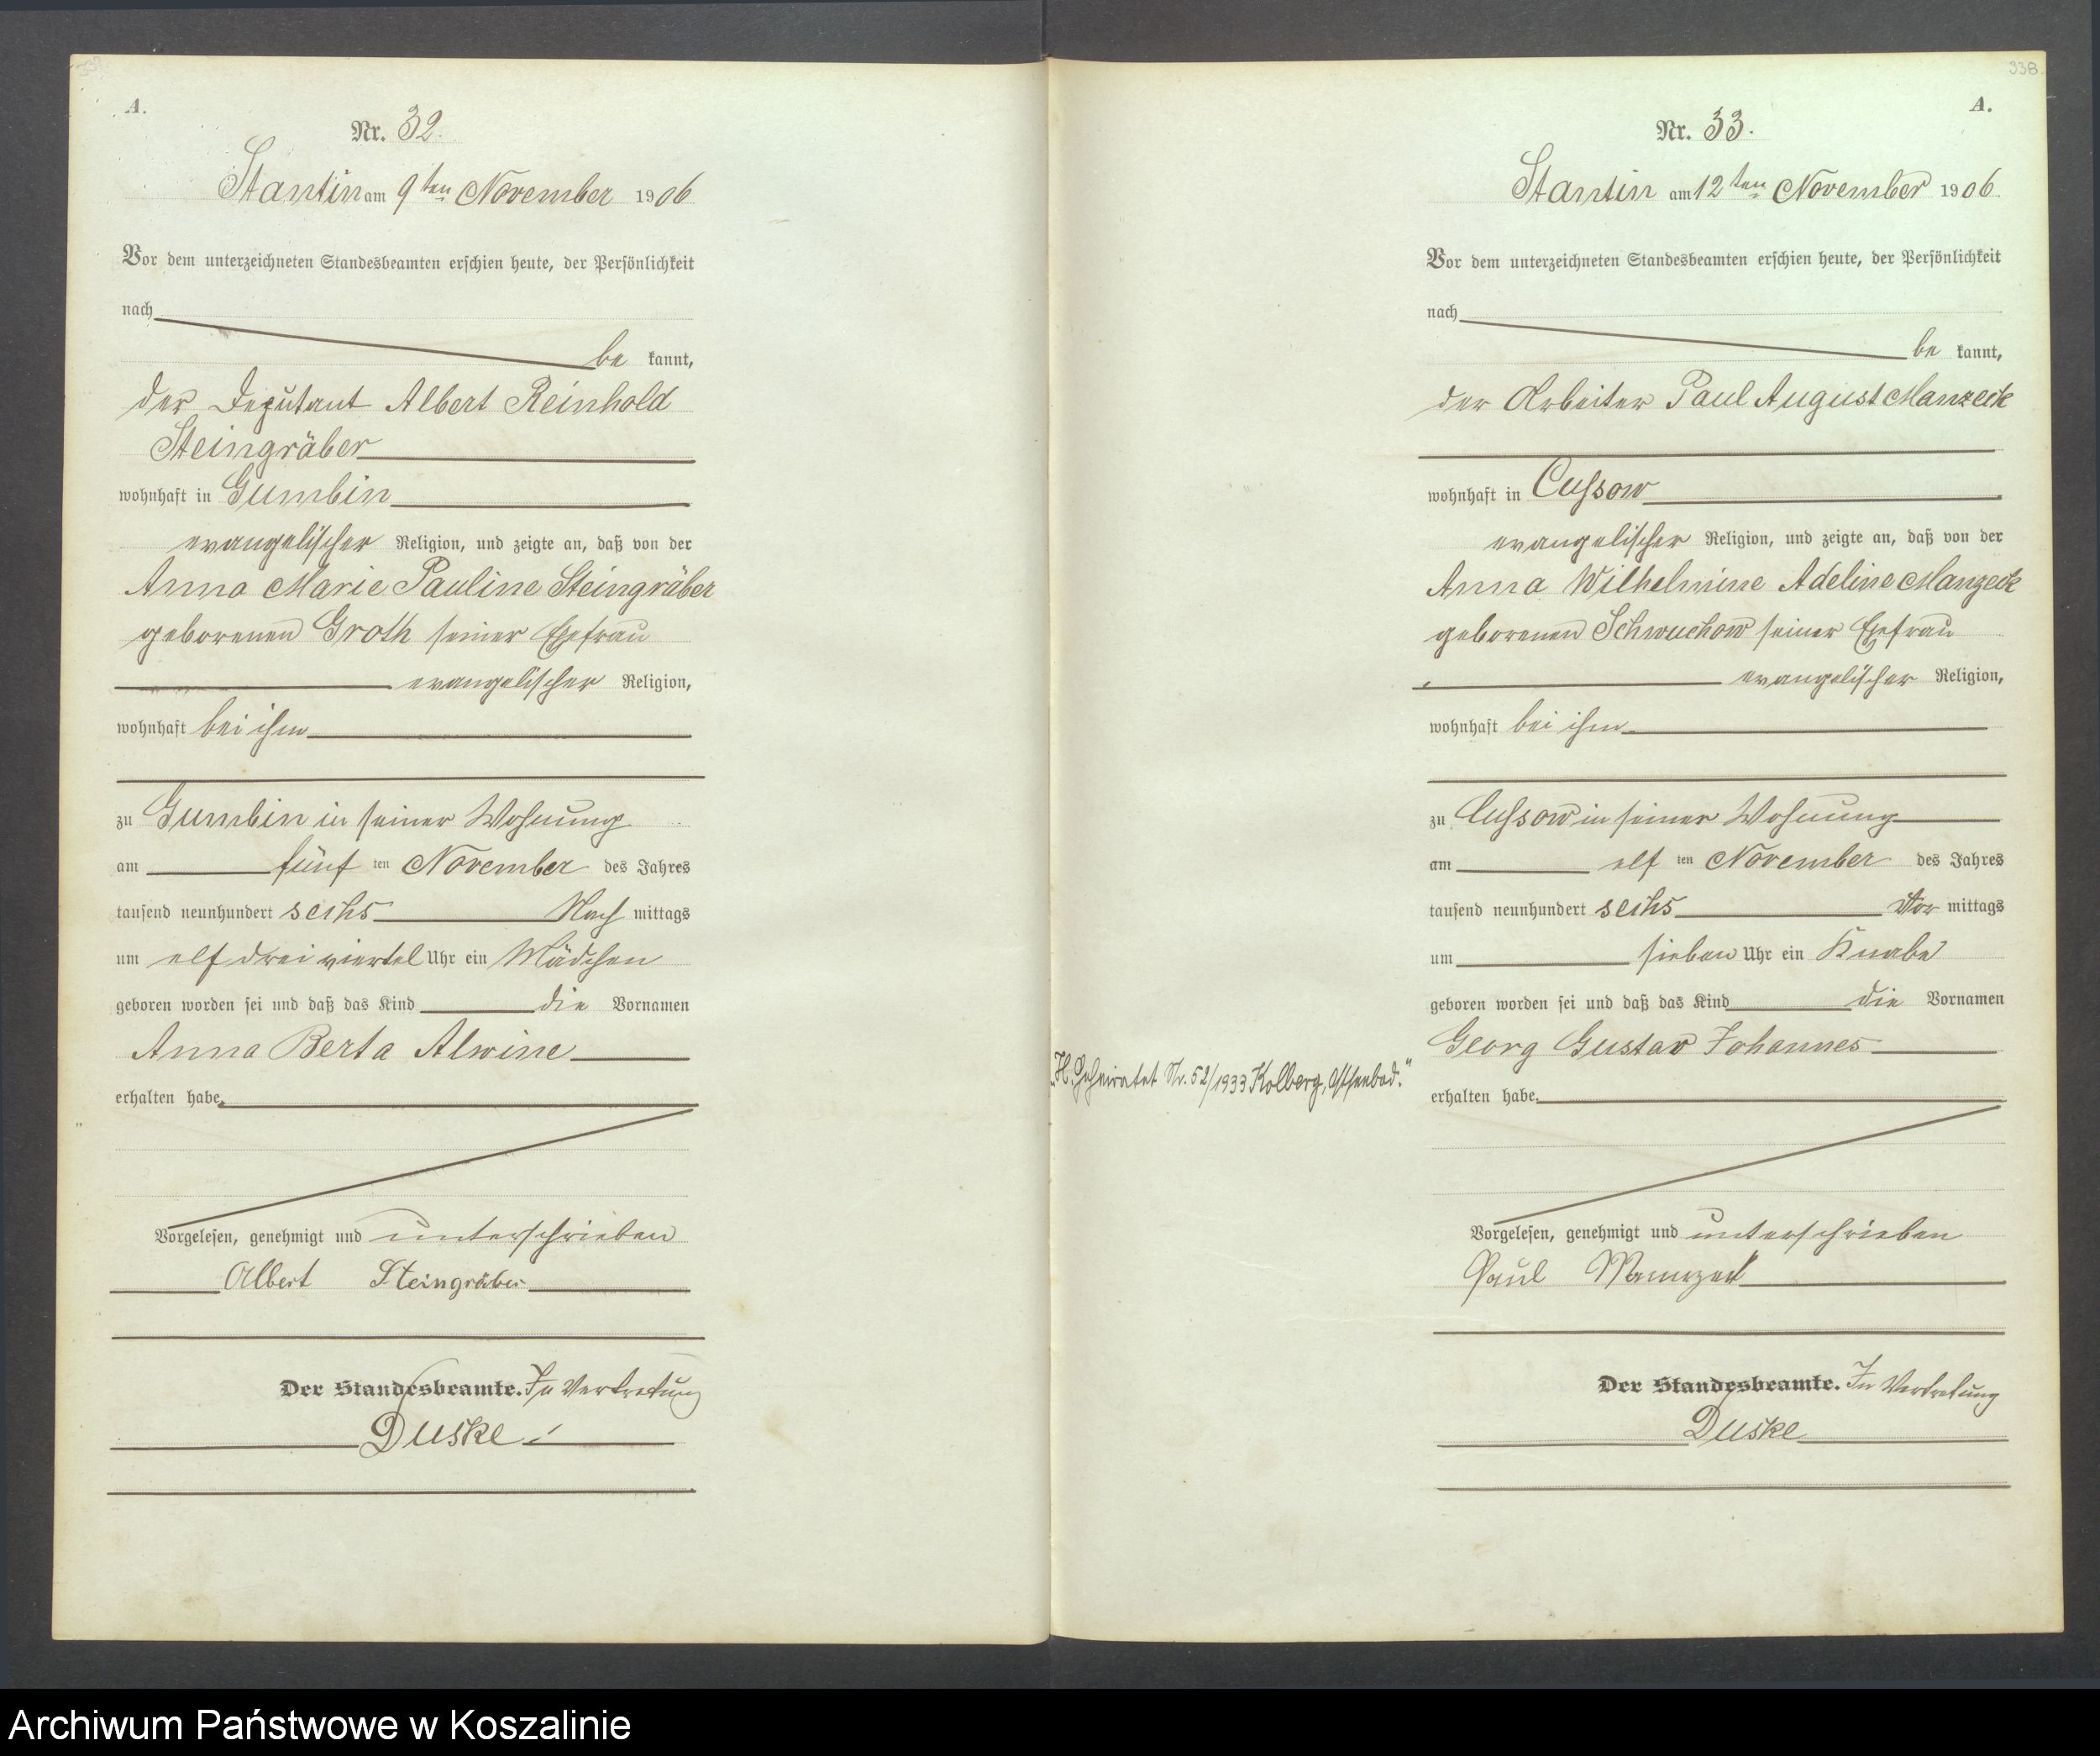 A.
Nr. 32.
Stantin am 9ten November 1906
Vor dem unterzeichneten Standesbeamten erschien heute, der Persönlichkeit
nach
be kannt,
der Deputant Albert Reinhold
Steingräber
wohnhaft in Gumbin
evangelischer Religion, und zeigte an, daß von der
Anna Marie Pauline Steingräber
geborenen Groth seiner Ehefrau
evangelischer Religion,
wohnhaft bei ihm
zu Gumbin in seiner Wohnung
am fünf ten November des Jahres
tausend neunhundert sechs Nach mittags
um elf drei viertel Uhr ein Mädchen
geboren worden sei und daß das Kind die Vornamen
Anna Berta Alwine
erhalten habe.
Vorgelesen, genehmigt und unterschrieben
Albert Steingräber
Der Standesbeamte. In Vertretung
Duske
338
A.
Nr. 33.
Stantin am 12ten November 1906
Vor dem unterzeichneten Standesbeamten erschien heute, der Persönlichkeit
nach
be kannt,
der Arbeiter Paul August Manzeck
wohnhaft in Cussow
evangelischer Religion, und zeigte an, daß von der
Anna Wilhelmine Adeline Manzeck
geborenen Schwuchow seiner Ehefrau
evangelischer Religion,
wohnhaft bei ihm
zu Cussow in seiner Wohnung
am elf ten November des Jahres
tausend neunhundert sechs Vor mittags
um sieben Uhr ein Knabe
geboren worden sei und daß das Kind die Vornamen
Georg Gustav Johannes
"H. Geheiratet Nr. 52/1933 Kolberg, Ostseebad."
erhalten habe.
Vorgelesen, genehmigt und unterschrieben
Paul Mannzeck
Der Standesbeamte. In Vertretung
Duske
Archiwum Państwowe w Koszalinie